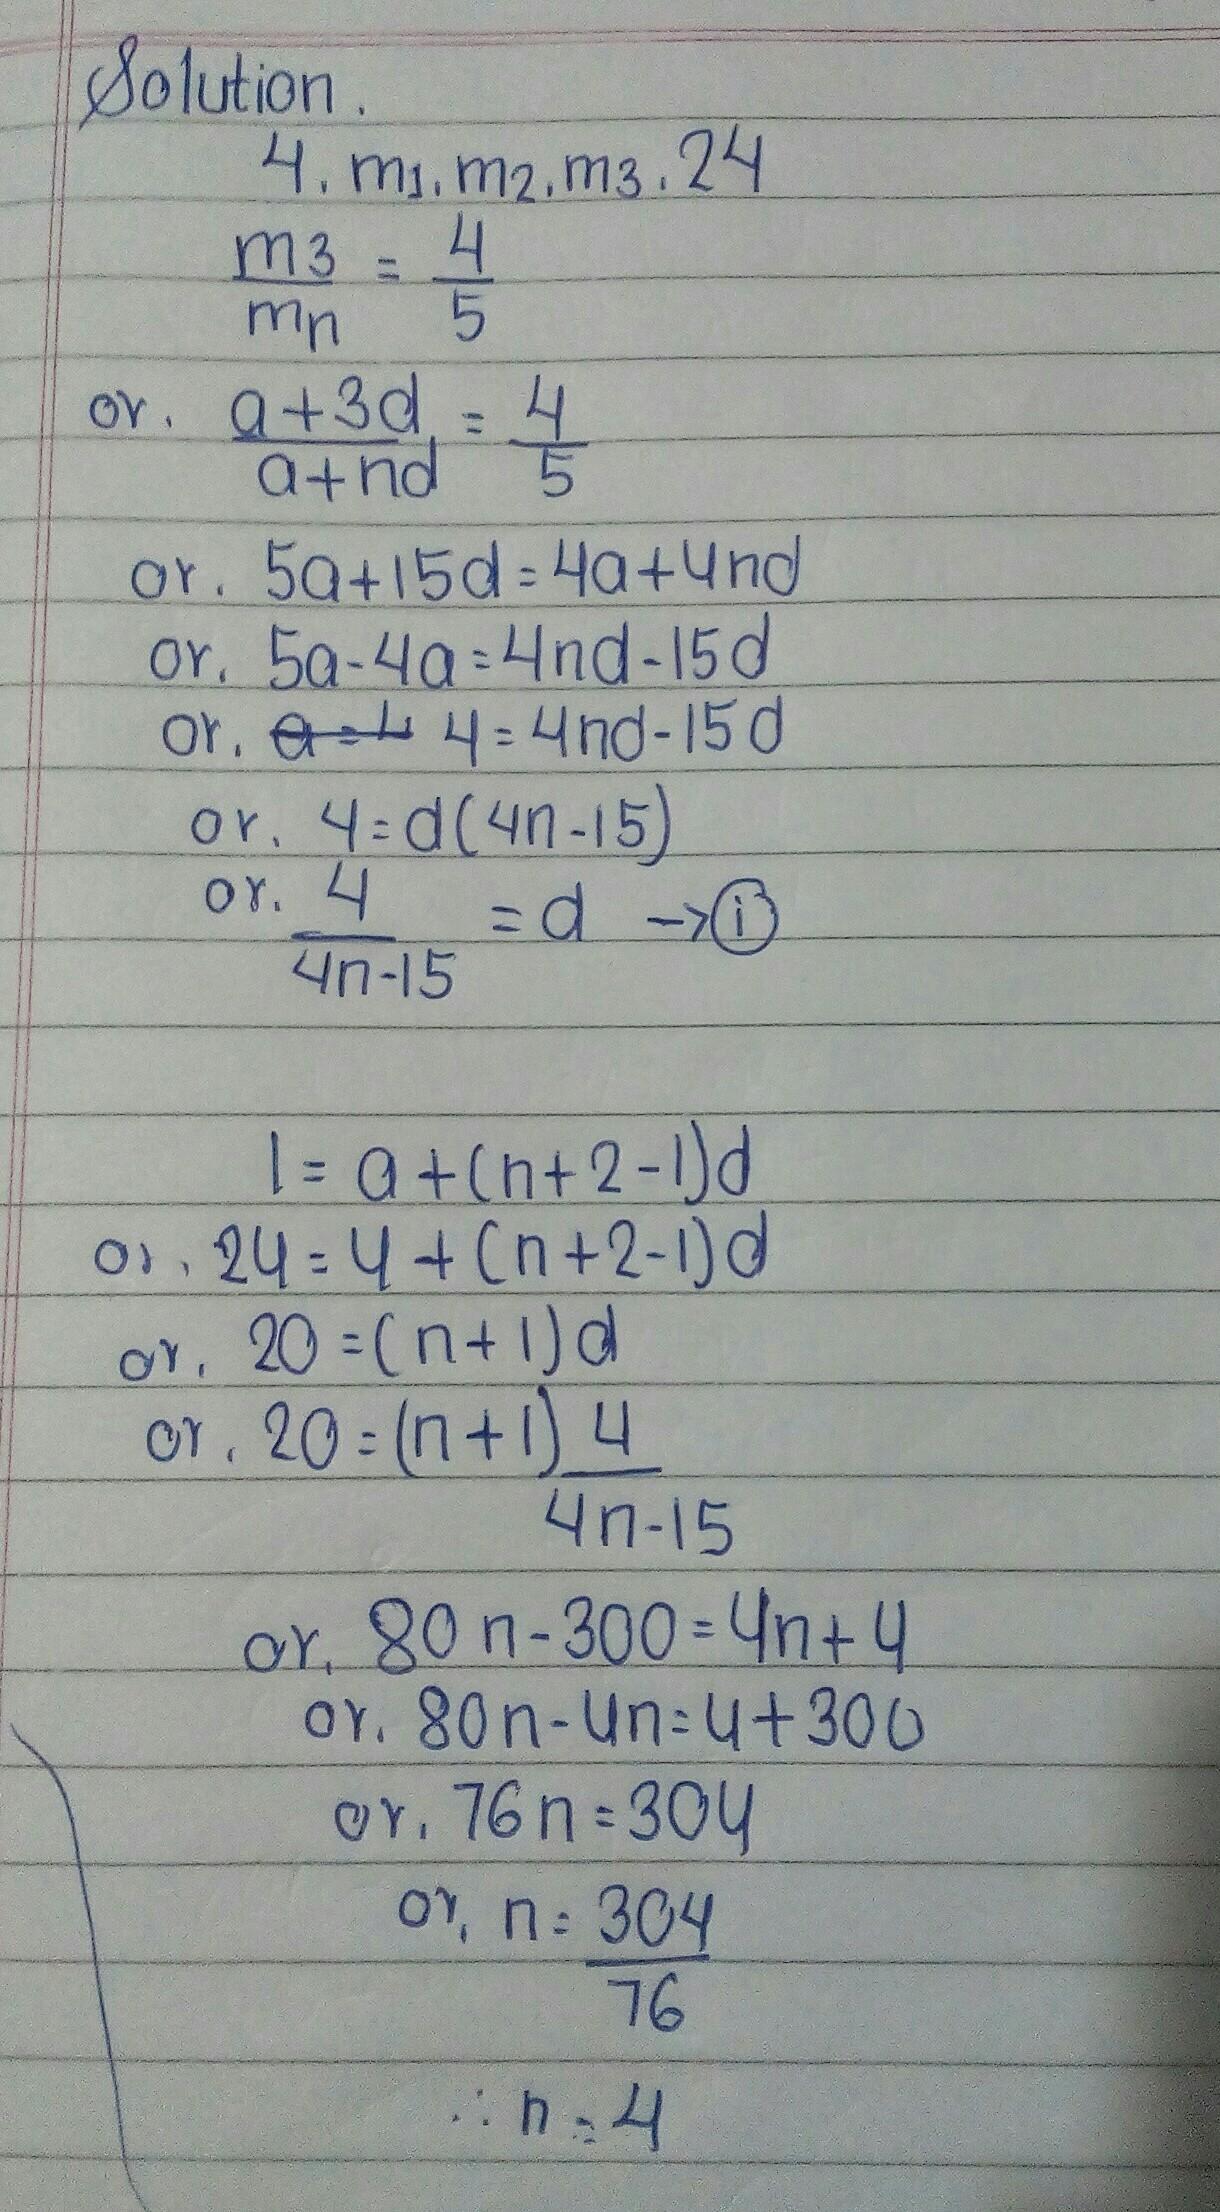 Solution.
4. m1. m2. m3. 24
m3/mn = 4/5
or. a+3d/a+nd = 4/5
or. 5a+15d=4a+4nd
or. 5a-4a=4nd-15d
or. 4=4nd-15d
or. 4=d(4n-15)
or. 4/4n-15 = d →(i)
l= a+(n+2-1)d
or. 24=4+(n+2-1)d
or. 20=(n+1)d
or. 20=(n+1) 4/4n-15
or. 80n-300=4n+4
or. 80n-4n=4+300
or. 76n=304
or, n= 304/76
∴ n=4